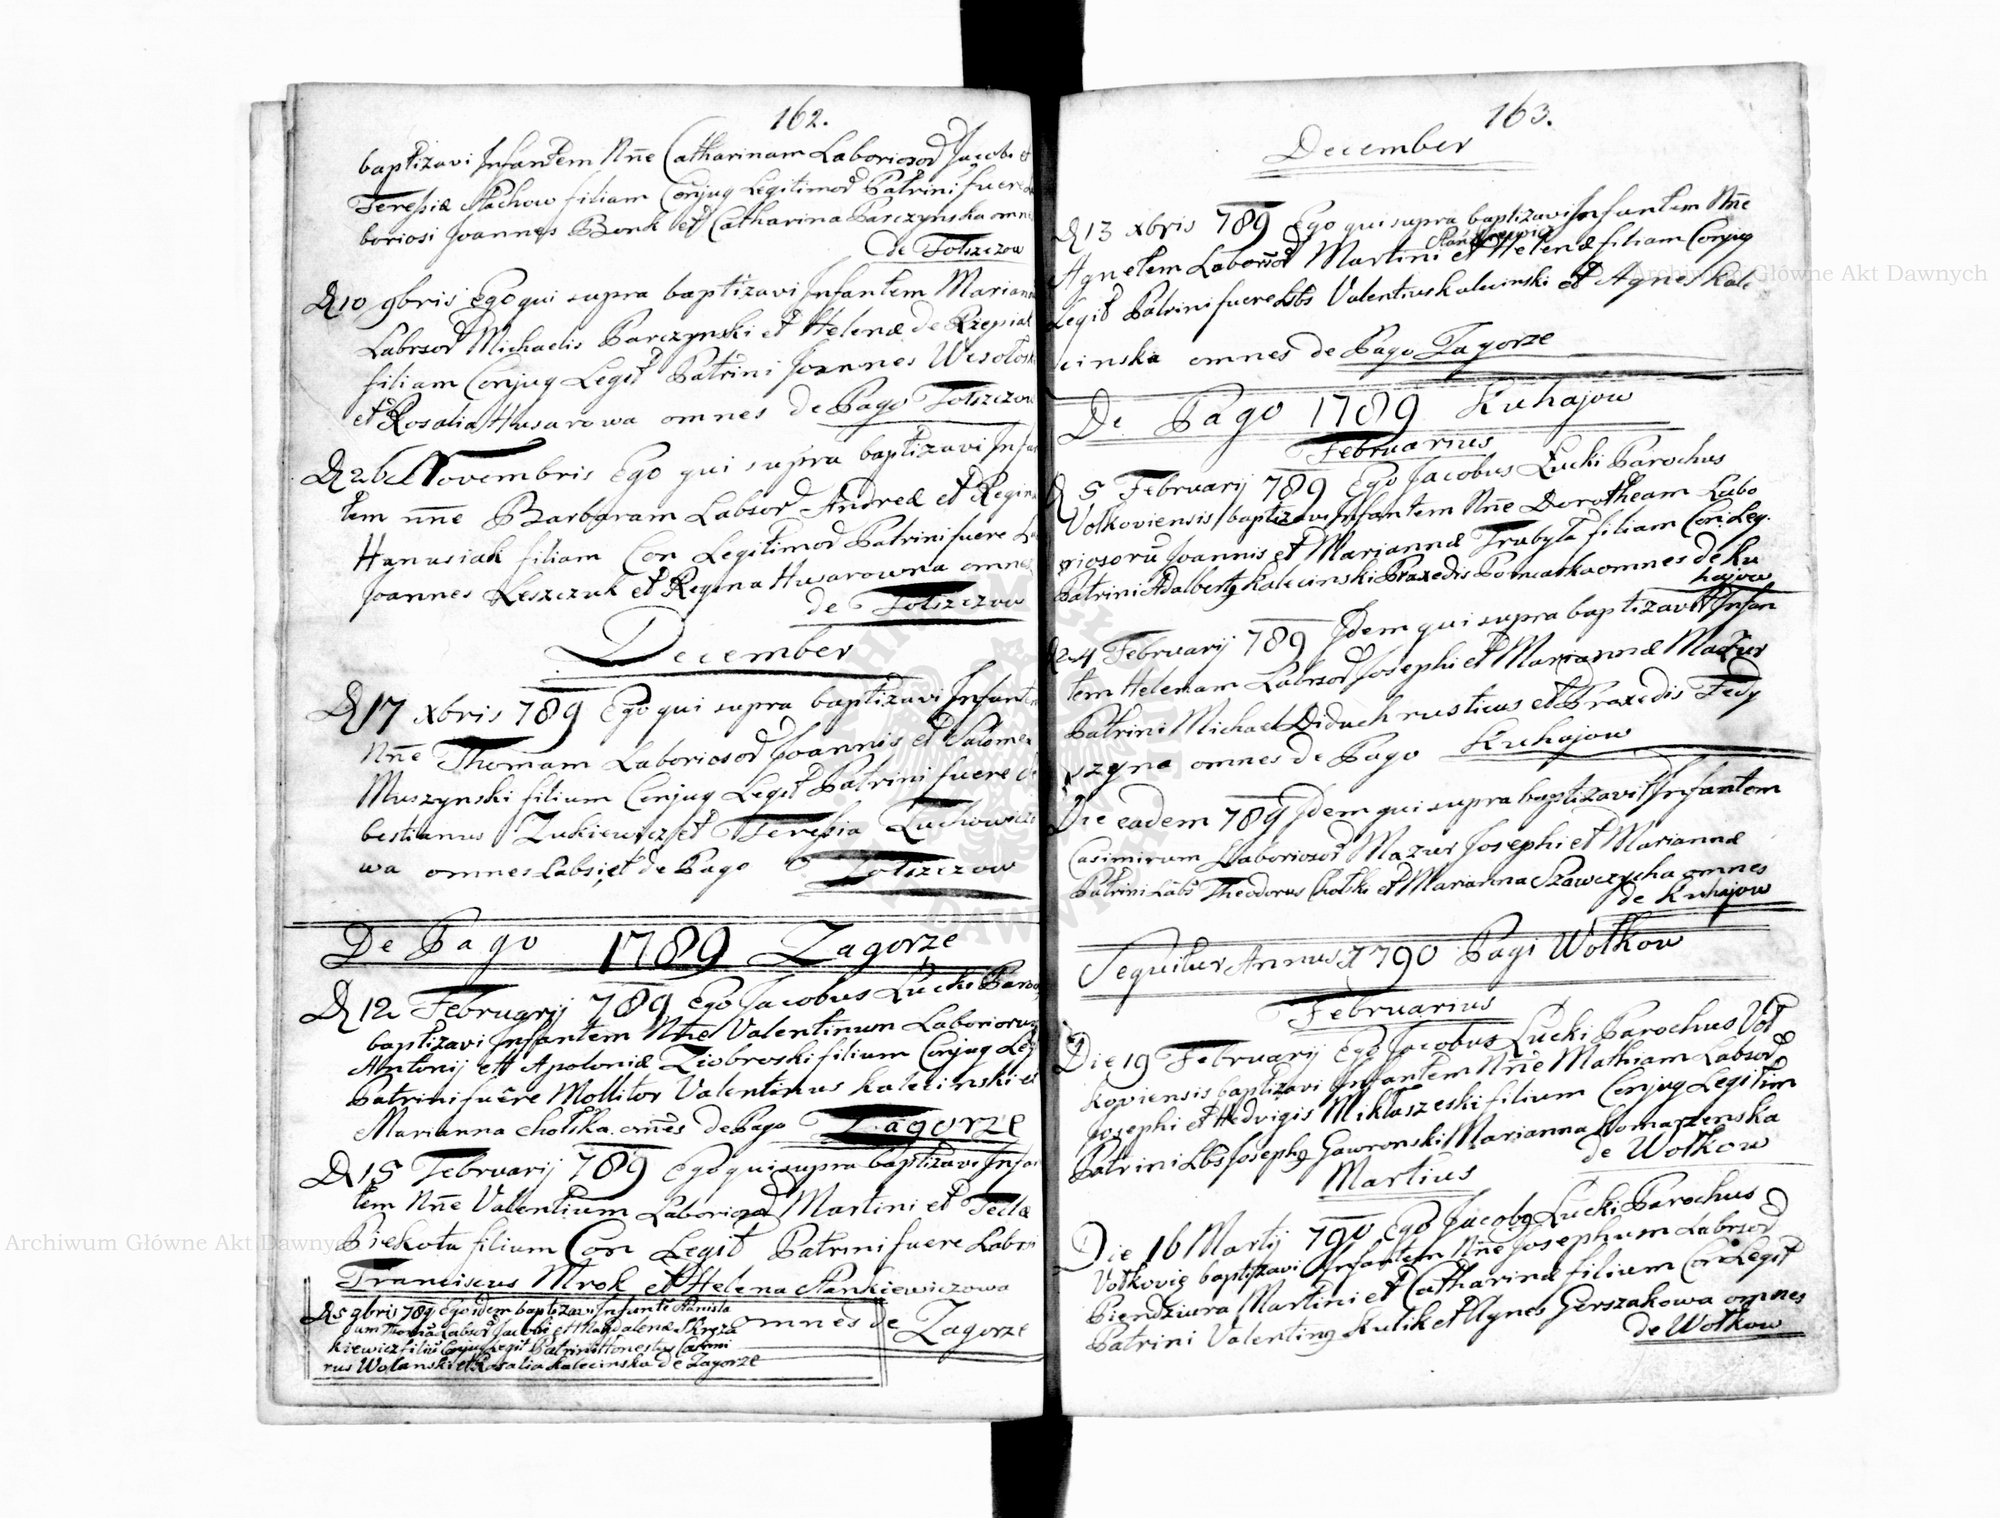 162.
baptizavi Infantem Nne Catharinam Laboriosor Jacobi et
Teressiæ Stachow filiam Conjug Legitimor Patrini fuere La
boriosi Joannes Bonk et Catharina Parczynska omn
de Tołszczow
D 10 9bris Ego qui supra baptizavi Infantem Mariann
Labrsor Michaelis Parczynski et Helenæ de Rzepiak
filiam Conjug Legit Patrini Joannes Wesołosk
et Rosalia Husarowa omnes de Pago Tołszczow
D 26 Novembris Ego qui supra baptizavi Infan
tem nne Barbaram Labsor Andreæ et Regin
Hanusiak filiam Con Legitimor Patrini fuere La
Joannes Leszczuk et Regina Husarowna omnes
de Tołszczow
December
D 17 xbris 789 Ego qui supra baptizavi Infante
Nne Thomam Laboriosor Joannis et Salomea
Muszynski filium Conjug Legit Patrini fuere
bestianus Zukiewicz et Teressia Luchowicz
wa omnes Labsi et de Pago Tołszczow
De Pago 1789 Zagorze
D 12 Februarij 789 Ego Jacobus Łucki Paro
baptizavi Infantem Nne Valentinum Laborioru
Antonij et Apoloniæ Ziobrowski filium Conjug Leg
Patrini fuere Mollitor Valentinus Kalecinski et
Marianna Chołska omes de Pago Zagorze
D 15 Februarij 789 Ego qui supra baptizavi Infan
tem Nne Valentium Laborior Martini et Teclæ
Piekota filium Con Legit Patrini fuere Labri
Franciscus Mrok et Helena Stankiewiczowa
omnes de Zagorze
D 5 9bris 789 Ego idem baptizavi Infante Stanisla
um Thoma Labsor Jacobi et Magdalenæ Skrza
kiewicz filiu Conjug Legit Patrini Honestus Casimi
rus Wolanski et Rosalia Kalecinska de Zagorze
163.
December
D 13 xbris 789 Ego qui supra baptizavi Infantem Nne
Stankiewicz
Agnetem Laborsor Martini et Helenæ filiam Conjug
Legit Patrini fuere Lbs Valentius Kalecinski et Agnes Kale
cinska omnes de Pago Zagorze
De Pago 1789 Kuhajow
Februarius
D 5 Februarij 789 Ego Jacobus Łucki Parochus
Votkoviensis baptizavi Infantem Nne Dorotheam Labo
riosoru Joannis et Mariannæ Trubyła filiam Con: Leg:
Patrini Adalbertg Kalecinski Praxedis Pomcarka omnes de Ku
hajow
D 24 Februarij 789 Idem qui supra baptizavit Infan
tem Helenam Labrsor Josephi et Mariannæ Mazur
Patrini Michael Diduch rusticus et Praxedis Fedy
szyna omnes de Pago Kuhajow
Die eadem 789 Idem qui supra baptizavit Infantem
Casimirum Laboriosor Mazur Josephi et Mariannæ
Patrini Labs Theodorus Chołsko et Marianna Szawczycha omnes
de Kuhajow
Sequitur Annus 1790 Pagi Wołkow
Februarius
Die 19 Februarij Ego Jacobus Łucki Parochus Voł
koviensis baptizavi Infantem Nne Mathiam Labsor
Josephi et Hedvigis Miktaszeski filium Conjug Legitim
Patrini Lbs Josephg Gaworonski Marianna Komarzenska
de Wołkow
Martius
Die 16 Martij 790 Ego Jacobg Łucki Parochus
Votkovię baptizavi Infantem Nne Josephum Labrsor
Pierdziura Martini et Catharinæ filium Con Legit
Patrini Valenting Kulik et Agnes Gerszakowa omnes
de Wołkow
Archiwum Główne Akt Dawnych
Archiwum Główne Akt Dawnych